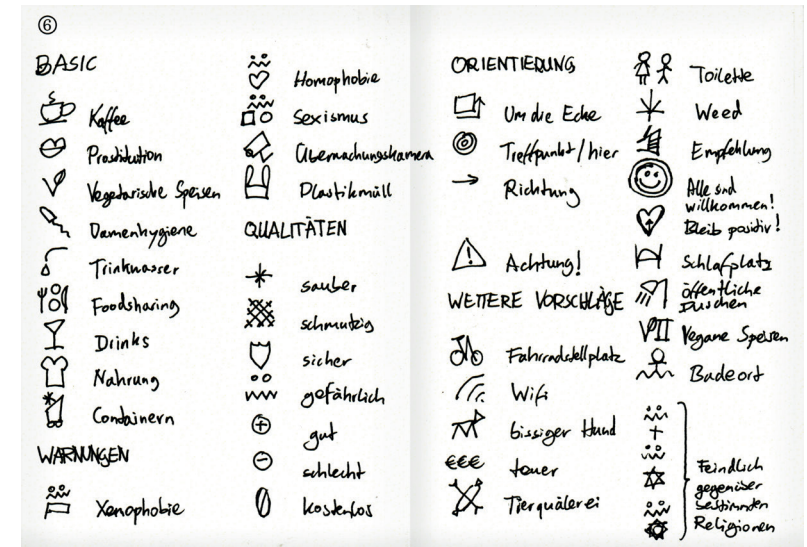 6
BASIC
Kaffee
Prostitution
Vegetarische Speisen
Damenhygiene
Trinkwasser
Foodsharing
Drinks
Nahrung
Containern
WARNUNGEN
Xenophobie
Homophobie
Sexismus
Überwachungskamera
Plastikmüll
QUALITÄTEN
sauber
schmutzig
sicher
gefährlich
gut
schlecht
kostenlos
ORIENTIERUNG
Um die Ecke
Treffpunkt/hier
Richtung
Achtung!
WEITERE VORSCHLÄGE
Fahrradstellplatz
Wifi
bissiger Hund
€€€ teuer
Tierquälerei
Toilette
Weed
Empfehlung
Alle sind
willkommen!
Bleib positiv!
Schlafplatz
öffentliche
Duschen
Vegane Speisen
Badeort
Feindlich
gegenüber
bestimmten
Religionen